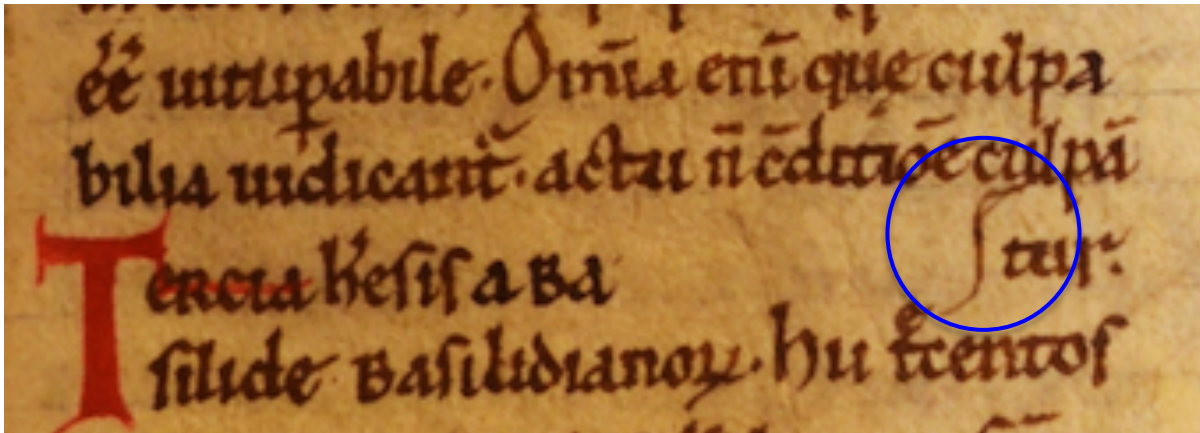 éé uitupabile. Om̄ia enī que culpa
bilia uidicant᷑. actu n̄ cōditiōe culpā
tur.
Tercia h̓esis a Ba
silide Basilidianoꝝ. hii tͤcentos